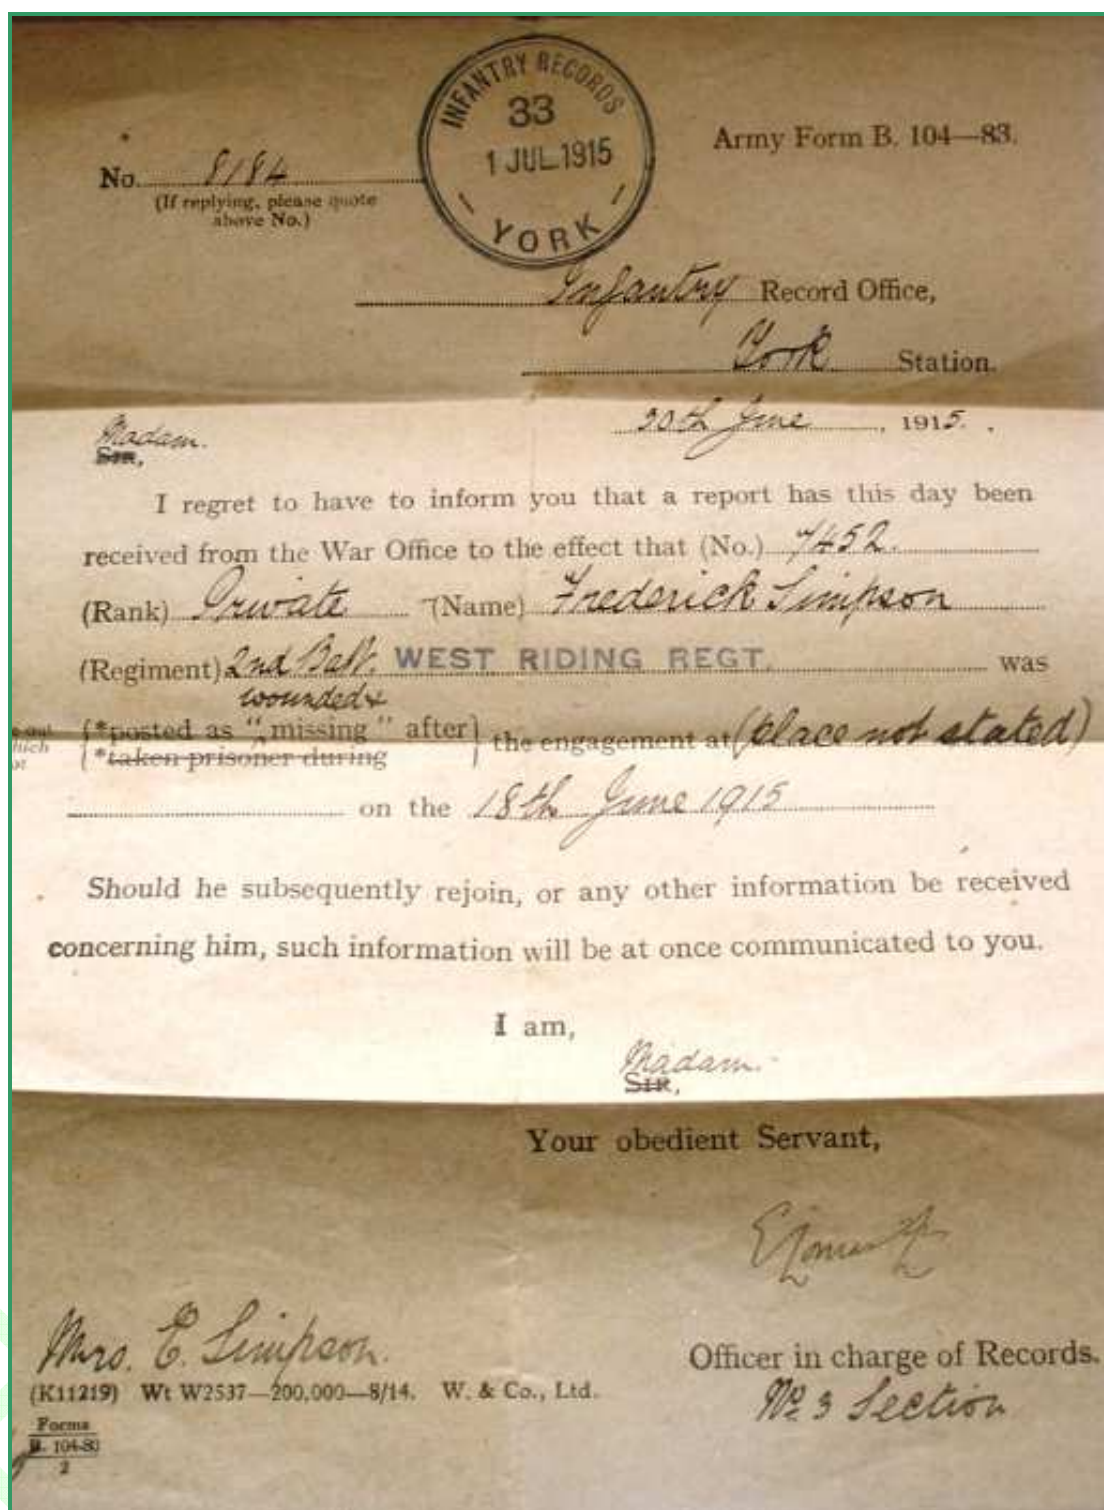 INFANTRY RECORDS
33
1 JUL 1915
YORK
Army Form B. 104—83.
No. 8184
(If replying, please quote
above No.)
Infantry Record Office,
York Station.
30th June, 1915.
Madam.
SIR,
I regret to have to inform you that a report has this day been
received from the War Office to the effect that (No.) 7452.
(Rank) Private (Name) Frederick Simpson
(Regiment) 2nd Batt. WEST RIDING REGT. was
wounded &
{*posted as "missing" after} the engagement at (place not stated)
{*taken prisoner during
on the 18th June 1915
Should he subsequently rejoin, or any other information be received
concerning him, such information will be at once communicated to you.
I am,
Madam.
SIR,
Your obedient Servant,
Mrs. E. Simpson.
Officer in charge of Records.
No 3 Section
(K11219) Wt W2537—200,000—8/14. W. & Co., Ltd.
Forms
B. 104-83
2